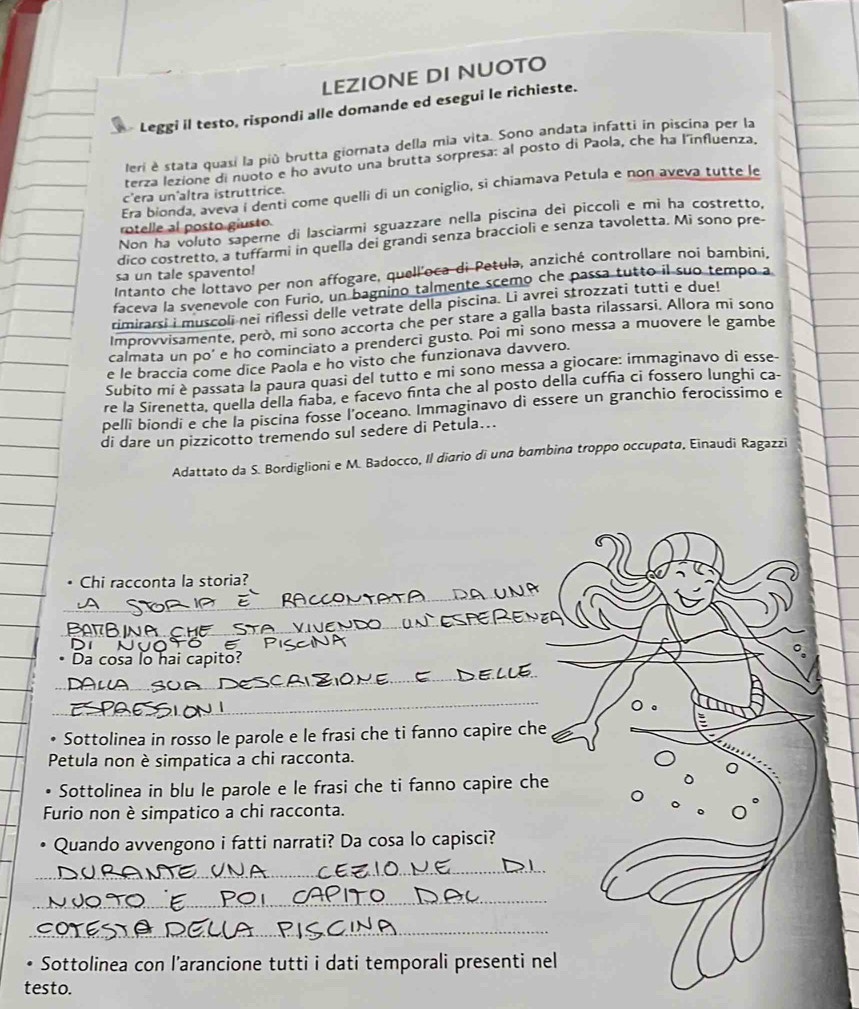 LEZIONE DI NUOTO
Leggi il testo, rispondi alle domande ed esegui le richieste.
Ieri è stata quasi la più brutta giornata della mia vita. Sono andata infatti in piscina per la
terza lezione di nuoto e ho avuto una brutta sorpresa: al posto di Paola, che ha l'influenza,
c'era un'altra istruttrice.
Era bionda, aveva i denti come quelli di un coniglio, si chiamava Petula e non aveva tutte le
rotelle al posto giusto.
Non ha voluto saperne di lasciarmi sguazzare nella piscina dei piccoli e mi ha costretto,
dico costretto, a tuffarmi in quella dei grandi senza braccioli e senza tavoletta. Mi sono pre-
sa un tale spavento!
Intanto che lottavo per non affogare, quell'oca di Petula, anziché controllare noi bambini,
faceva la svenevole con Furio, un bagnino talmente scemo che passa tutto il suo tempo a
rimirarsi i muscoli nei riflessi delle vetrate della piscina. Li avrei strozzati tutti e due!
Improvvisamente, però, mi sono accorta che per stare a galla basta rilassarsi. Allora mi sono
calmata un po' e ho cominciato a prenderci gusto. Poi mi sono messa a muovere le gambe
e le braccia come dice Paola e ho visto che funzionava davvero.
Subito mi è passata la paura quasi del tutto e mi sono messa a giocare: immaginavo di esse-
re la Sirenetta, quella della fiaba, e facevo finta che al posto della cuffia ci fossero lunghi ca-
pelli biondi e che la piscina fosse l'oceano. Immaginavo di essere un granchio ferocissimo e
di dare un pizzicotto tremendo sul sedere di Petula...
Adattato da S. Bordiglioni e M. Badocco, Il diario di una bambina troppo occupata, Einaudi Ragazzi
• Chi racconta la storia?
LA STORIA È RACCONTATA DA UNA
BAMBINA CHE STA VIVENDO UN'ESPERENZA
DI NUOTO E PISCINA
• Da cosa lo hai capito?
DALLA SUA DESCRIZIONE E DELLE
ESPRESSIONI
• Sottolinea in rosso le parole e le frasi che ti fanno capire che
Petula non è simpatica a chi racconta.
• Sottolinea in blu le parole e le frasi che ti fanno capire che
Furio non è simpatico a chi racconta.
• Quando avvengono i fatti narrati? Da cosa lo capisci?
DURANTE UNA LEZIONE DI
NUOTO E POI CAPITO DAL
COTESTO DELLA PISCINA
• Sottolinea con l'arancione tutti i dati temporali presenti nel
testo.